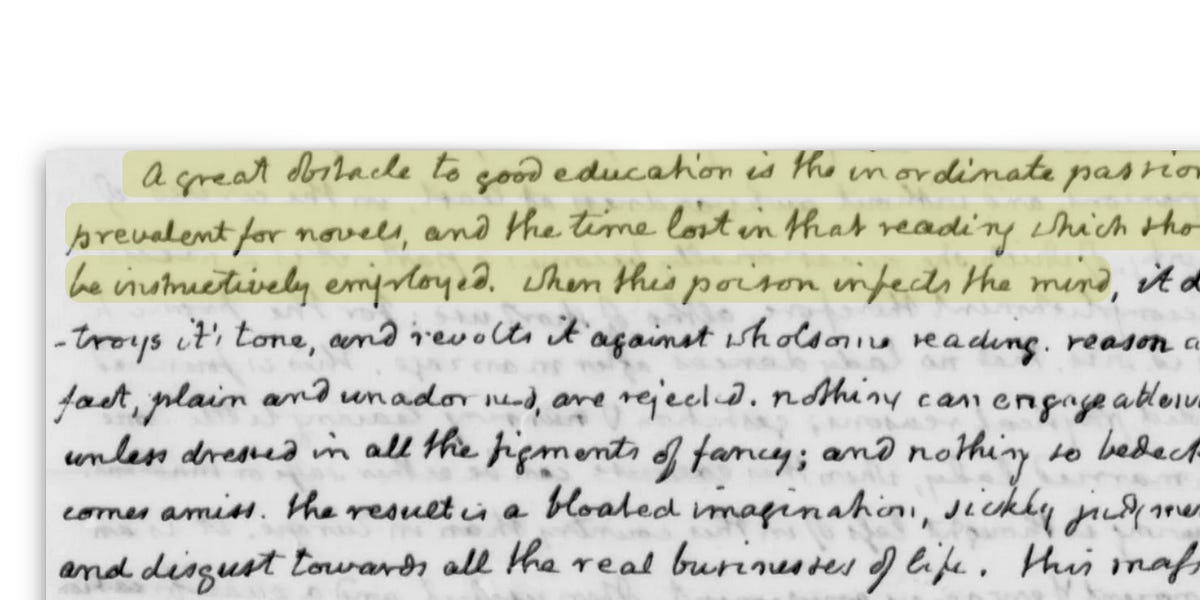 a great obstacle to good education is the inordinate passion
prevalent for novels, and the time lost in that reading which sho
be instructively employed. when this poison infects the mind, it d
-troys it's tone, and revolts it against wholsome reading. reason a
fact, plain and unadorned, are rejected. nothing can engage attent
unless dressed in all the figments of fancy; and nothing so bedeck
comes amiss. the result is a bloated imagination, sickly judgme
and disgust towards all the real businesses of life. this mass